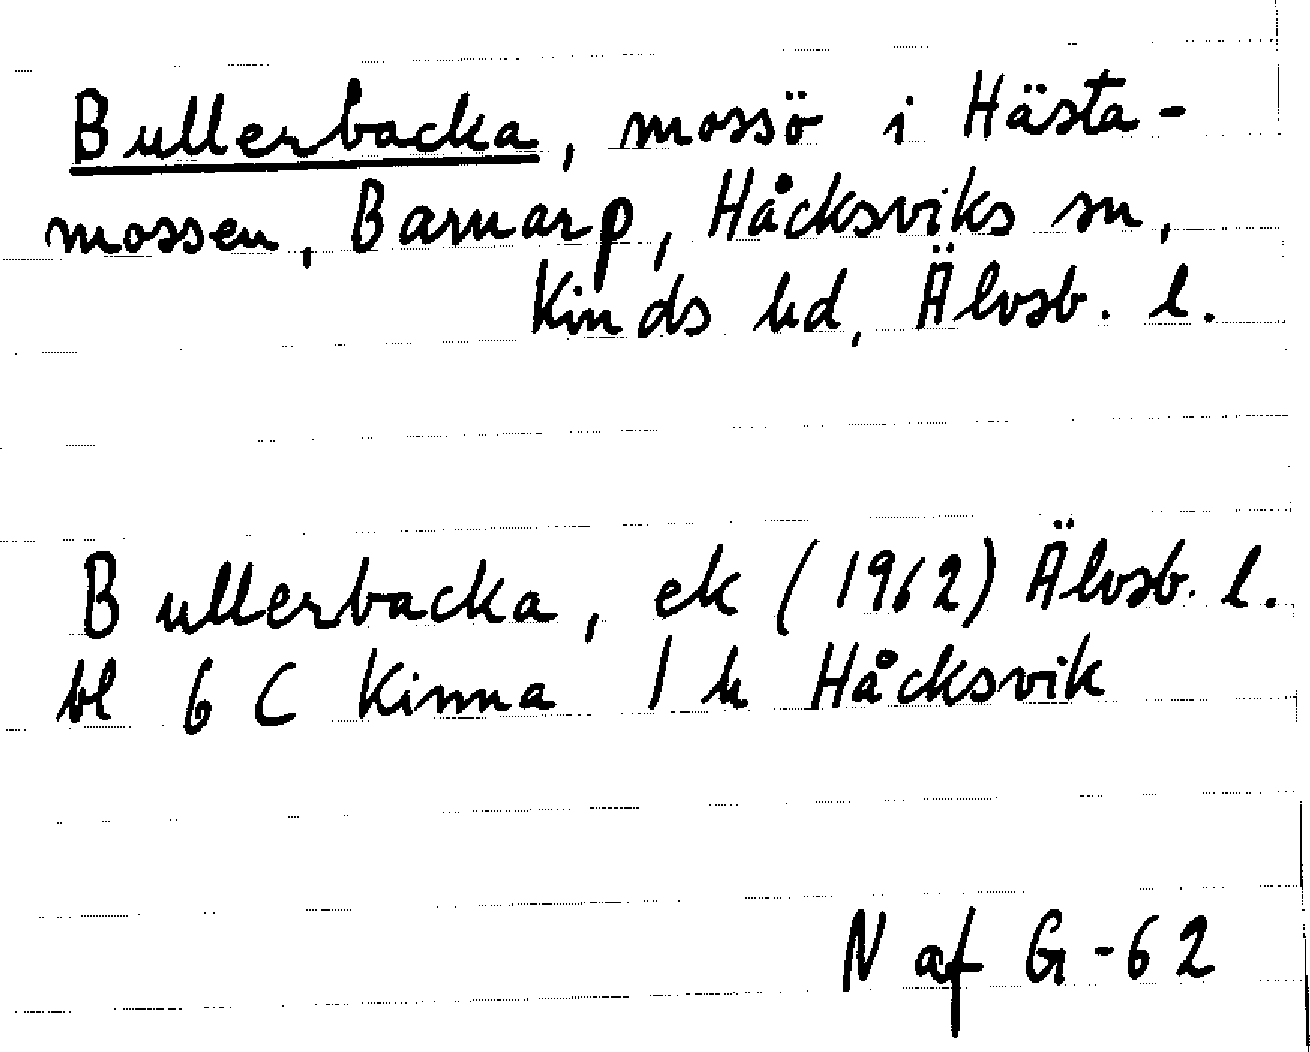 Bullerbacka, mossö i Hästa-
mossen, Barnarp, Håcksviks sn,
Kinds hd, Älvsb. l.
Bullerbacka, ek (1962) Älvsb. l.
bl 6 C Kinna 1 h Håcksvik
N af G -62